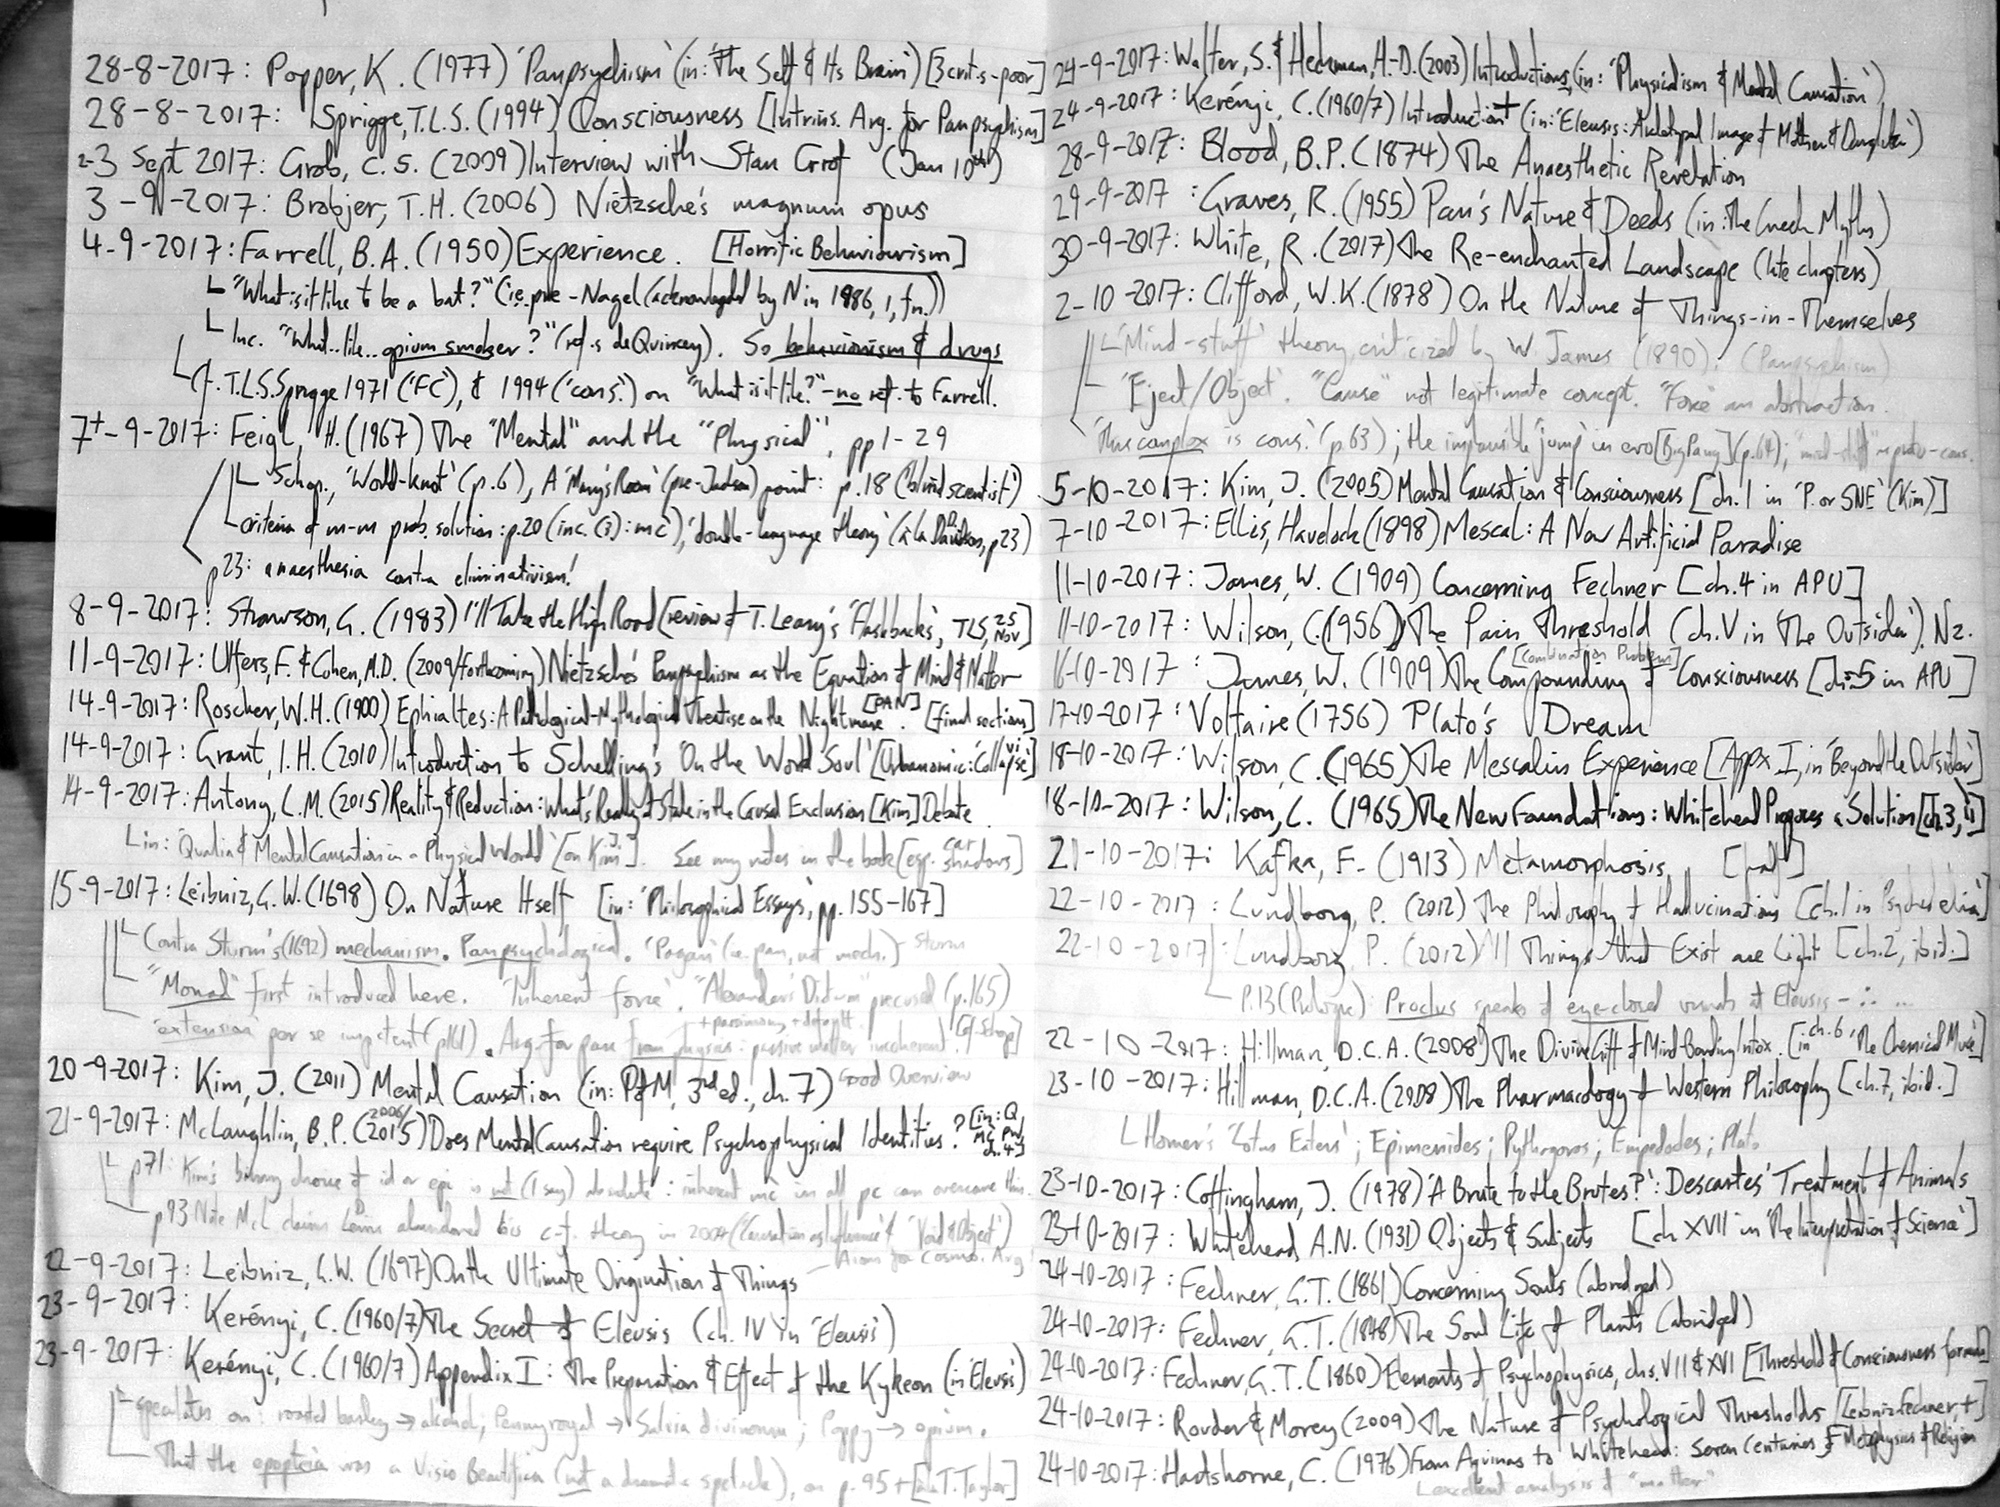 28-8-2017: Popper, K. (1977) 'Panpsychism' (in: 'The Self & Its Brain') [3 crit.s - poor]
28-8-2017: Sprigge, T.L.S. (1994) Consciousness [Intrins. Arg. for Panpsychism]
2-3 Sept 2017: Grob, C.S. (2009) Interview with Stan Grof (Jan 10th)
3-9-2017: Brobjer, T.H. (2006) Nietzsche's magnum opus
4-9-2017: Farrell, B.A. (1950) Experience. [Horrific Behaviourism]
"What is it like to be a bat?" (i.e. pre-Nagel (acknowledged by N in 1986, 1, fn.))
Inc. "What..like..opium smoker?" (ref.s de Quincey). So behaviourism & drugs
Cf. T.L.S. Sprigge 1971 ('FC'), & 1994 ('cons.') on "What is it like?" - no ref. to Farrell.
7+-9-2017: Feigl, H. (1967) The "Mental" and the "Physical", pp 1-29
Schop., 'World-knot' (p.6), A 'Mary's Room' (pre-Jackson) point: p.18 ('blind scientist')
criteria of m-m prob. solution: p.20 (inc. (3): mc), 'double-language theory' (à la Davidson, p23)
p23: anaesthesia contra eliminativism!
8-9-2017: Strawson, G. (1983) I'll Take the High Road [review of T. Leary's 'Flashbacks', TLS, 25 Nov]
11-9-2017: Ulfers, F. & Cohen, M.D. (2009/forthcoming) Nietzsche's Panpsychism as the Equation of Mind & Matter
14-9-2017: Roscher, W.H. (1900) Ephialtes: A Pathological-Mythological Treatise on the Nightmare [PAN]. [final sections]
14-9-2017: Grant, I.H. (2010) Introduction to Schelling's 'On the World Soul' [Urbanomic: Collapse VI]
14-9-2017: Antony, L.M. (2015) Reality & Reduction: What's Really at Stake in the Causal Exclusion [Kim] Debate
in: 'Qualia & Mental Causation in a Physical World' [on Kim, J.]. See my notes in the book [esp. car shadows]
15-9-2017: Leibniz, G.W. (1698) On Nature Itself [in: 'Philosophical Essays', pp. 155-167]
Contra Sturm's (1692) mechanism. Panpsychological. 'Pagan' (i.e. pan, not mech.) - Sturm
"Monad" first introduced here. 'Inherent force'. "Alexander's Dictum" precursed (p.165)
'extension' per se impotent (p161). Arg. for pan from physics: passive matter incoherent. [cf. Schop] + parsimony + default
20-9-2017: Kim, J. (2011) Mental Causation (in: PofM, 3rd ed., ch. 7) Good Overview
21-9-2017: McLaughlin, B.P. (2006/2015) Does Mental Causation require Psychophysical Identities? [in: Q MC PW, ch.4]
p71: Kim's binary choice of id or epi is not (I say) absolute: inherent mc in all pc can overcome this.
p93 Note McL claims Lewis abandoned his c-f. theory in 2004 ('Causation as Influence' & 'Void & Object')
22-9-2017: Leibniz, G.W. (1697) On the Ultimate Origination of Things - Axioms for Cosmo. Arg
23-9-2017: Kerényi, C. (1960/7) The Secret of Eleusis (ch. IV in 'Eleusis')
23-9-2017: Kerényi, C. (1960/7) Appendix I: The Preparation & Effect of the Kykeon (in 'Eleusis')
speculates on: roasted barley → alcohol; Pennyroyal → Salvia divinorum; Poppy → opium.
That the epopteia was a Visio Beatifica (not a dramatic spectacle), on p.95+ [à la T. Taylor]
24-9-2017: Walter, S. & Heckman, H.-D. (2003) Introductions, (in: 'Physicalism & Mental Causation')
24-9-2017: Kerényi, C. (1960/7) Introduction (in: 'Eleusis: Archetypal Image of Mother & Daughter')
28-9-2017: Blood, B.P. (1874) The Anaesthetic Revelation
29-9-2017: Graves, R. (1955) Pan's Nature & Deeds (in: The Greek Myths)
30-9-2017: White, R. (2017) The Re-enchanted Landscape (late chapters)
2-10-2017: Clifford, W.K. (1878) On the Nature of Things-in-Themselves
'Mind-stuff' theory, criticized by W. James (1890). (Panpsychism)
'Eject/Object'. "Cause" not legitimate concept. "Force" an abstraction.
'This complex is cons.' (p63); the impossible 'jump' in evo [Big Pang] (p.64); "mind-stuff" as proto-cons.
5-10-2017: Kim, J. (2005) Mental Causation & Consciousness [ch.1 in 'P. or SNE' (Kim)]
7-10-2017: Ellis, Havelock (1898) Mescal: A New Artificial Paradise
11-10-2017: James, W. (1909) Concerning Fechner [ch.4 in APU]
11-10-2017: Wilson, C. (1956) The Pain Threshold (ch. V in 'The Outsider'). Nz.
16-10-2017 : James, W. (1909) The Compounding of Consciousness [ch.5 in APU] [Combination Problem]
17-10-2017: Voltaire (1756) Plato's Dream
18-10-2017: Wilson, C. (1965) The Mescalin Experience [Appx I, in 'Beyond the Outsider']
18-10-2017: Wilson, C. (1965) The New Foundations: Whitehead Proposes a Solution [ch.3, "]
21-10-2017: Kafka, F. (1913) Metamorphosis [half]
22-10-2017: Lundborg, P. (2012) The Philosophy of Hallucinations [ch.1 in Psychedelia]
22-10-2017: Lundborg, P. (2012) All Things that Exist are Light [ch.2, ibid.]
P.13 (Prologue): Proclus speaks of eye-closed visions at Eleusis - ∴ ...
22-10-2017: Hillman, D.C.A. (2008) The Divine Gift of Mind-Bending Intox. [in ch.6, 'The Chemical Muse']
23-10-2017: Hillman, D.C.A. (2008) The Pharmacology of Western Philosophy [ch.7, ibid.]
Homer's 'Lotus Eaters'; Epimenides; Pythagoras; Empedocles; Plato
23-10-2017: Cottingham, J. (1978) 'A Brute to the Brutes?': Descartes' Treatment of Animals
23-10-2017: Whitehead A.N. (1931) Objects & Subjects [ch XVII in 'The Interpretation of Science']
24-10-2017: Fechner, G.T. (1861) Concerning Souls (abridged)
24-10-2017: Fechner, G.T. (1848) The Soul Life of Plants (abridged)
24-10-2017: Fechner, G.T. (1860) Elements of Psychophysics, chs. VII & XVI [Threshold of Consciousness formula]
24-10-2017: Rouder & Morey (2009) The Nature of Psychological Thresholds [Leibniz-Fechner, +]
24-10-2017: Hartshorne, C. (1976) From Aquinas to Whitehead: Seven Centuries of Metaphysics of Religion
excellent analysis of "matter"